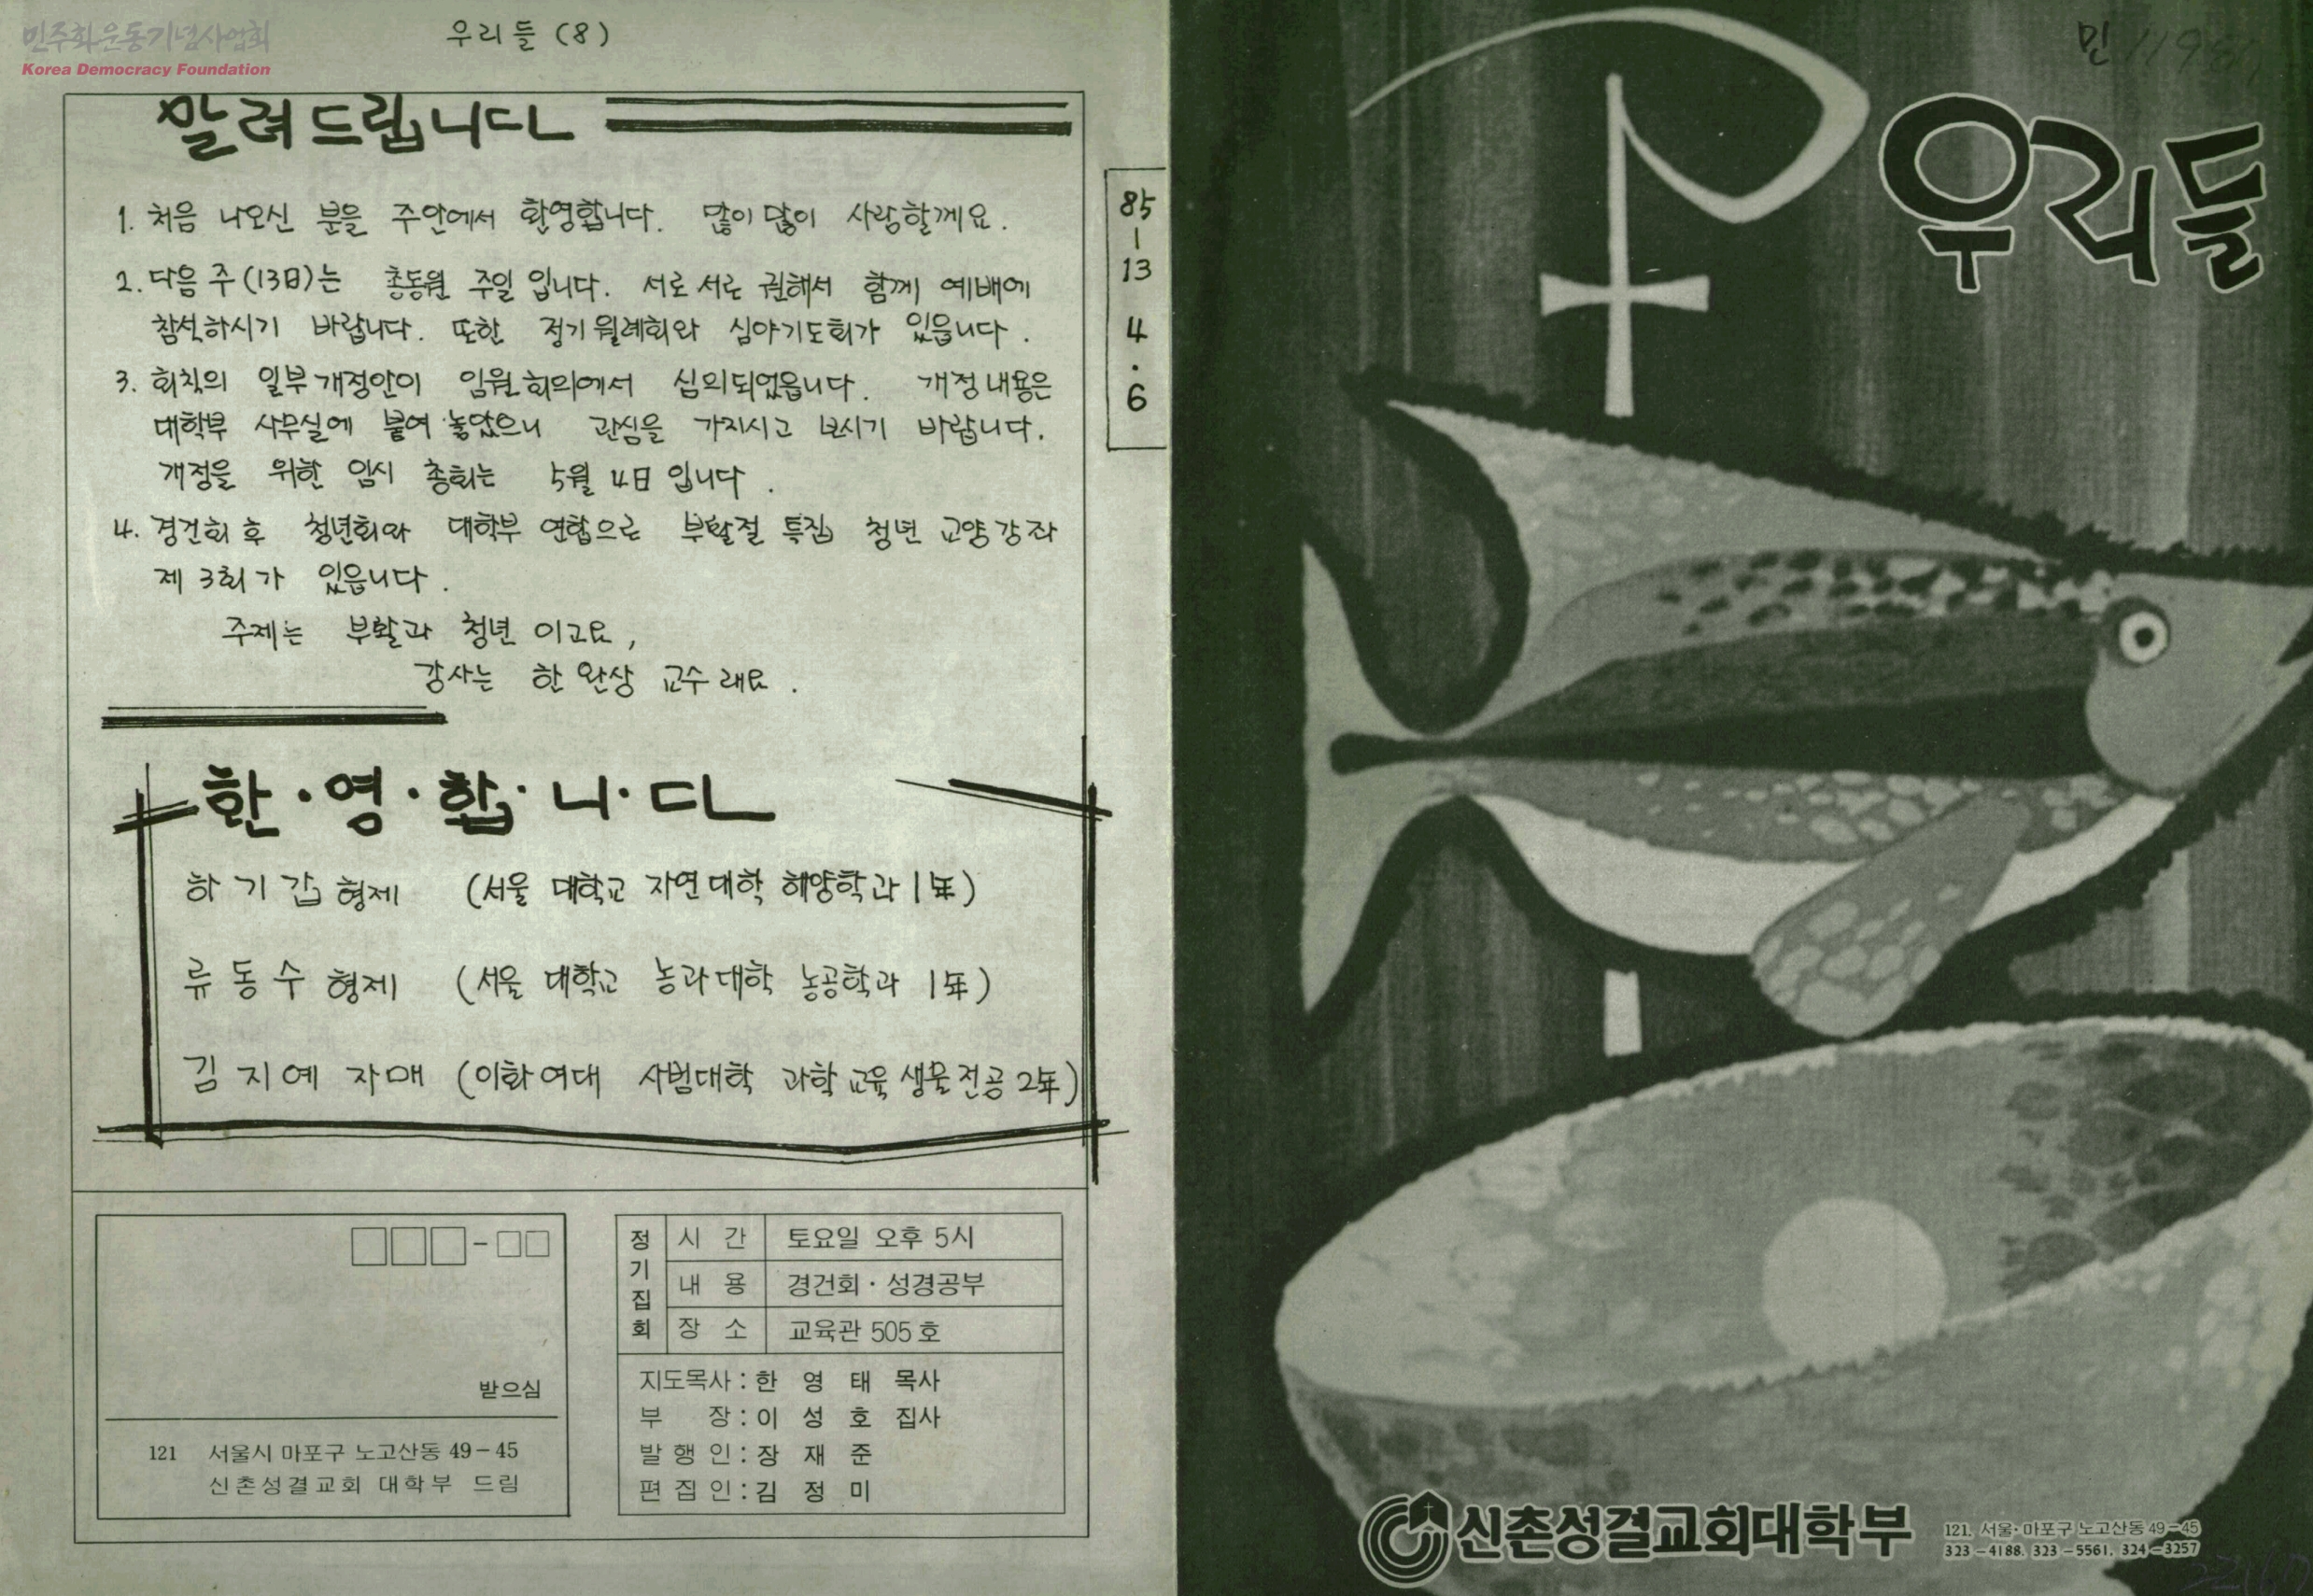 민주화운동기념사업회
Korea Democracy Foundation
우리들 (8)
알려드립니다
1. 처음 나오신 분을 주안에서 환영합니다. 많이 많이 사랑할께요.
2. 다음 주(13日)는 총동원 주일 입니다. 서로 서로 권해서 함께 예배에
참석하시기 바랍니다. 또한 정기월례회와 심야기도회가 있읍니다.
3. 회칙의 일부개정안이 임원회의에서 심의되었읍니다. 개정내용은
대학부 사무실에 붙여 놓았으니 관심을 가지시고 보시기 바랍니다.
개정을 위한 임시 총회는 5월 4日 입니다.
4. 경건회 후 청년회와 대학부 연합으로 부활절 특집 청년 교양강좌
제 3회가 있읍니다.
주제는 부활과 청년 이고요,
강사는 한 완상 교수래요.
85
-
13
4
.
6
환·영·합·니·다
하기갑 형제 (서울 대학교 자연대학 해양학과 1年)
류동수 형제 (서울 대학교 농과대학 농공학과 1年)
김지예 자매 (이화여대 사범대학 과학교육 생물전공 2年)
받으심
121 서울시 마포구 노고산동 49-45
신촌성결교회 대학부 드림
정기집회
시 간 토요일 오후 5시
내 용 경건회·성경공부
장 소 교육관 505호
지도목사 : 한 영 태 목사
부 장 : 이 성 호 집사
발 행 인 : 장 재 준
편 집 인 : 김 정 미
민
우리들
신촌성결교회대학부
121. 서울·마포구 노고산동 49-45
323-4188. 323-5561. 324-3257